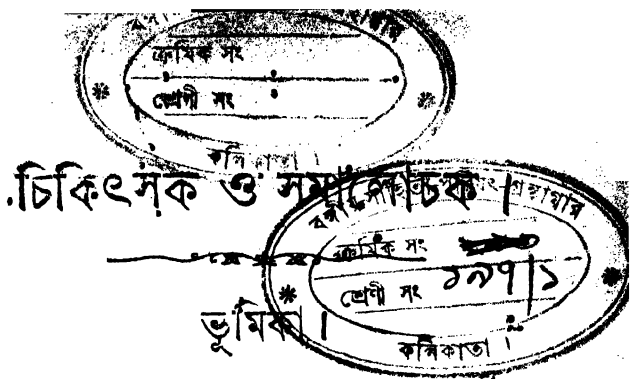 ক্রমিক সং
শ্রেণী সং
কলিকাতা ।
চিকিৎসক ও সমালোচক ।
বঙ্গীয় সাহিত্য পরিষৎ গ্রন্থাগার
ক্রমিক সং
শ্রেণী সং ১৯৭/১
কলিকাতা ।
ভূমিকা ।